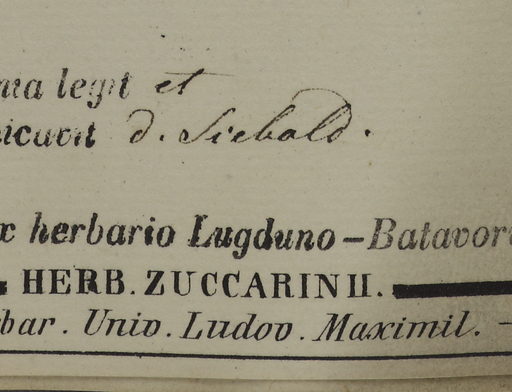 legit et
d. Siebold.
herbario Lugduno-Batavor
HERB. ZUCCARINII.
bar. Univ. Ludov. Maximil. -